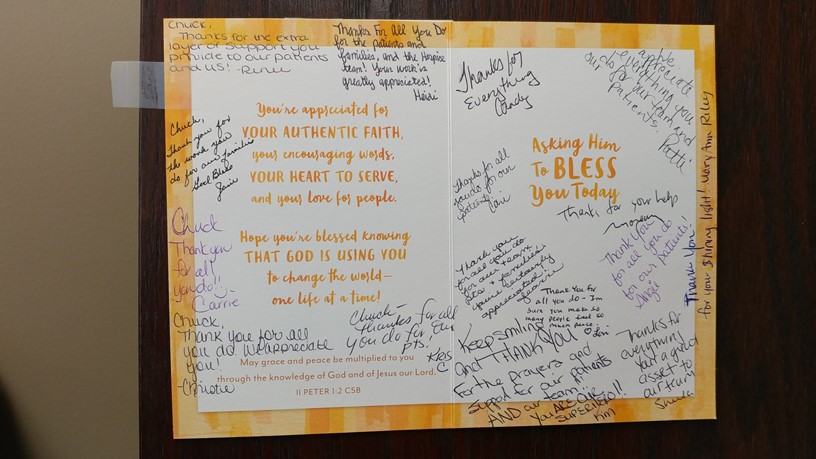 Chuck,
Thanks for the extra
layer of support you
provide to our patients
and us! -Renee
Thanks For All You Do
for the patients and
families, and the Hospice
team! Your work is
greatly appreciated!
Heidi
Chuck,
Thank you for
the work you
do for our families
God Bless
You're appreciated for
YOUR AUTHENTIC FAITH,
your encouraging words,
YOUR HEART TO SERVE,
and your love for people.
Hope you're blessed knowing
THAT GOD IS USING YOU
to change the world—
one life at a time!
Chuck
Thank you
for all
you do!!
Carrie
Chuck,
Thank you for all
you do. We appreciate
you!
-Christie
Chuck-
thanks for all
you do for our
pts!
Kris
C
May grace and peace be multiplied to you
through the knowledge of God and of Jesus our Lord.
II PETER 1:2 CSB
Thanks for
Everything
Candy
We
appreciate
everything you
do for our team and
our patients,
Patti
Asking Him
To BLESS
You Today
Thanks for all
you do for our
patients
Thank for your help
Thank you
for all you do
for our team
& families
You're
appreciated!
Thank You For
all you do - I'm
sure you make so
many people feel so
much peace.
♡ Lori
Thank you
for all you do
for our patients!
Angie
Thank You
for your shining light! Mary Ann Riley
Keep smiling
and THANK YOU
For the prayers and
support for our patients
AND our team!!
You ARE
Kim
Thanks for
everything
Your a great
asset to
our team